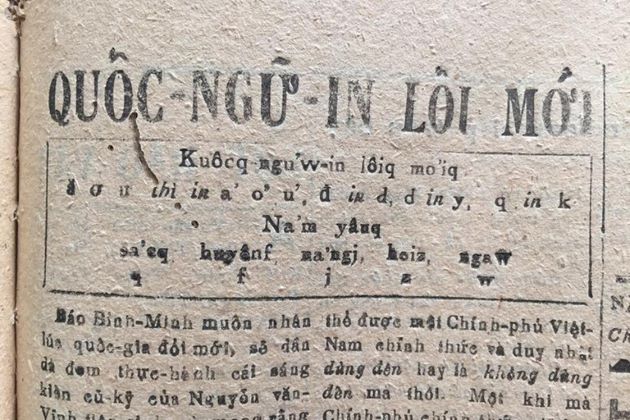 QUỐC-NGỮ-IN LỐI MỚI
Kuôcq-ngu'w-in lôiq mo'iq
ă ơ ư thì in a' o' u', đ in d, d in y, q in k
Na'm yâuq
sa'cq huyênf na'ngj hoiz ngaw
q f j z w
Báo Bình-Minh muốn nhân
lúc quốc-gia đổi mới, sẽ dần
dà đem thực-hành cái sáng
kiến cũ-kỹ của Nguyễn văn-
thể được một Chính-phủ Việt-
Nam chính thức và duy nhất
dùng đến hay là không dùng
đến mà thôi. Một khi mà